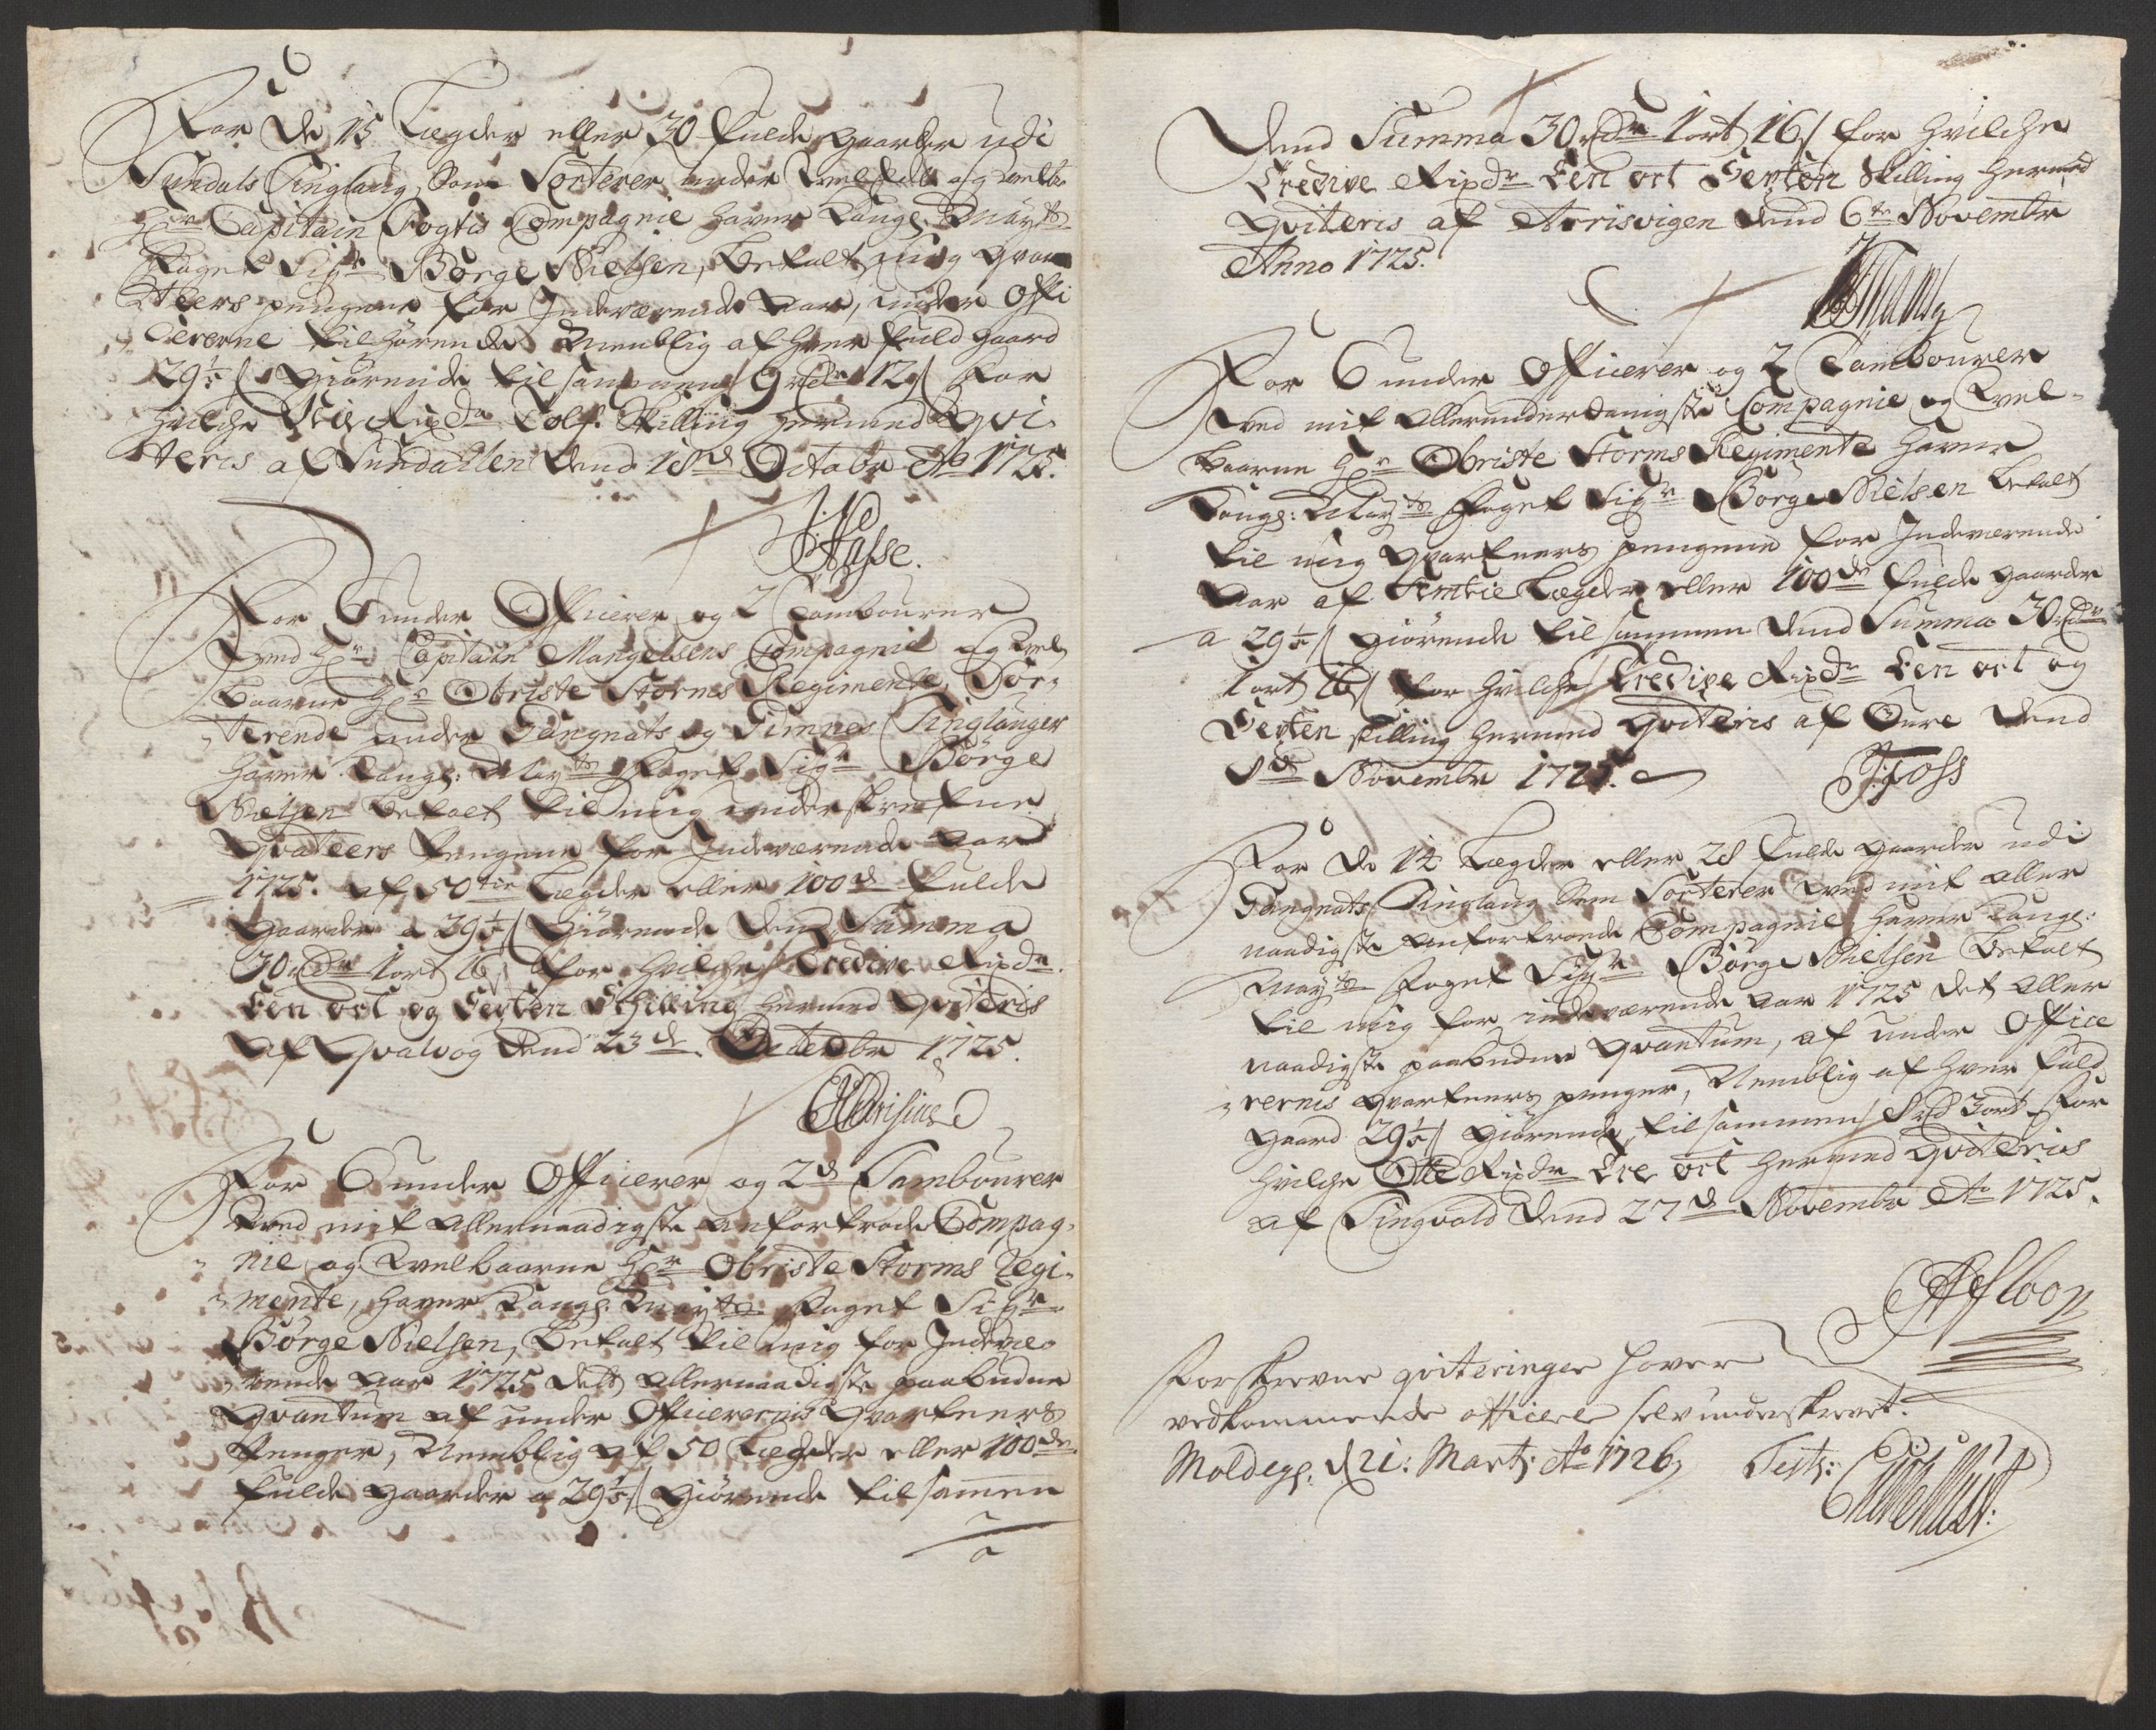 For de 15 Lægder eller 30 fulde gaarder udi
Sundals Tinglaug, Som Sorterer under Velædle og velb:
Hr Capitain Vogtes Compagnie haver Kongl: Mayts
Foget Sigr Børge Nielsen, betalt mig qvar
teers pengene for Indeværende Aar, under Offi
cererne tilhørende Nemblig af hver fuld gaard
29 1/5 s giørende tilsammen 9 rdr 12 s for
hvilche Nie Rixdr Tolf Skilling hermed qvi
teris af Sundallen dend 18de Octobr Ao 1725.
Hasse.
For 6 under Officerer og 2 Tambourer
ved Hr Capitain Mangelsens Compagnie og Vel
baarne Hr Obriste Storms Regimente, Sor-
terende under Gangnats og Timnes Tinglauger
haver Kongl: Mayts Foget Sigr Børge
Nielsen betalt til mig underskrefne
Qvateers Pengene for Indeværende Aar
1725. af 50tie Lægder eller 100de fulde
Gaarder a 29 1/5 s Giørende dend Summa
30 rdr 1 ort 16 s for hvilche Tredive Rixdr
Een ort og Sexten Schilling hermed Qviteris
Af Qvalvog dend 23de Octobr 1725.
For 6 under Officerer og 2de Tambourer
ved mit allernaadigste anfortrode Compag-
nie og Velbaarne Hr Obriste Storms Regi-
mente, haver Kongl: Mayts Foget Sigr
Børge Nielsen, betalt til mig for Indevæ-
rende Aar 1725 dett allernaadigste paabudne
Qvantum af under Officerernis Qvarteers
Penger, Nemblig af 50 Lægder eller 100de
fulde gaarder a 29 1/5 s giørende tilsamen
Dend Summa 30 rdr 1 ort 16 s for hvilche
Tredive Rixdr Een ort Sexten Skilling hermed
Qviteris af Arrisvigen dend 6te Novembr
Anno 1725.
For 6 under Officerer og 2 Tambourer
ved mit Allerunderdanigste Compagnie og Vel-
baarne Hr Obriste Storms Regimente haver
Kongl: Mayts Foget Sigr Børge Nielsen betalt
til mig qvarteers pengene for Indeværende
Aar af Femtie Lægder eller 100de fulde gaarder
a 29 1/5 s giørende tilsammen dend Summa 30 rdr
1 ort 16 s for hvilche Tredive Rixdr Een ort og
Sexten skilling hermed qviteris af Øure dend
8de Novembr 1725.
Foss
For de 14 Lægder eller 28 fulde gaarder udi
Gangnats Tinglaug Som Sorterer ved mit aller
naadigste anfortroede Compagnie haver Kongl:
Mayts Foget Sigr Børge Nielsen betalt
til mig for indeværende Aar 1725 det aller
naadigste paabudne qvantum, af under Office
rernis qvarteers penger, Nemblig af hver fuld
gaard 29 1/5 s giørende tilsammen 8 rd 3 ort for
hvilche Otte Rixdr Tre ort hermed qviteris
af Tingvold dend 27de Novembr Ao 1725.
Forskrevne qviteringer haver
vedkommende officerer selv underskrevet.
Moldegr. d 21: Marty Ao 1726, Test: